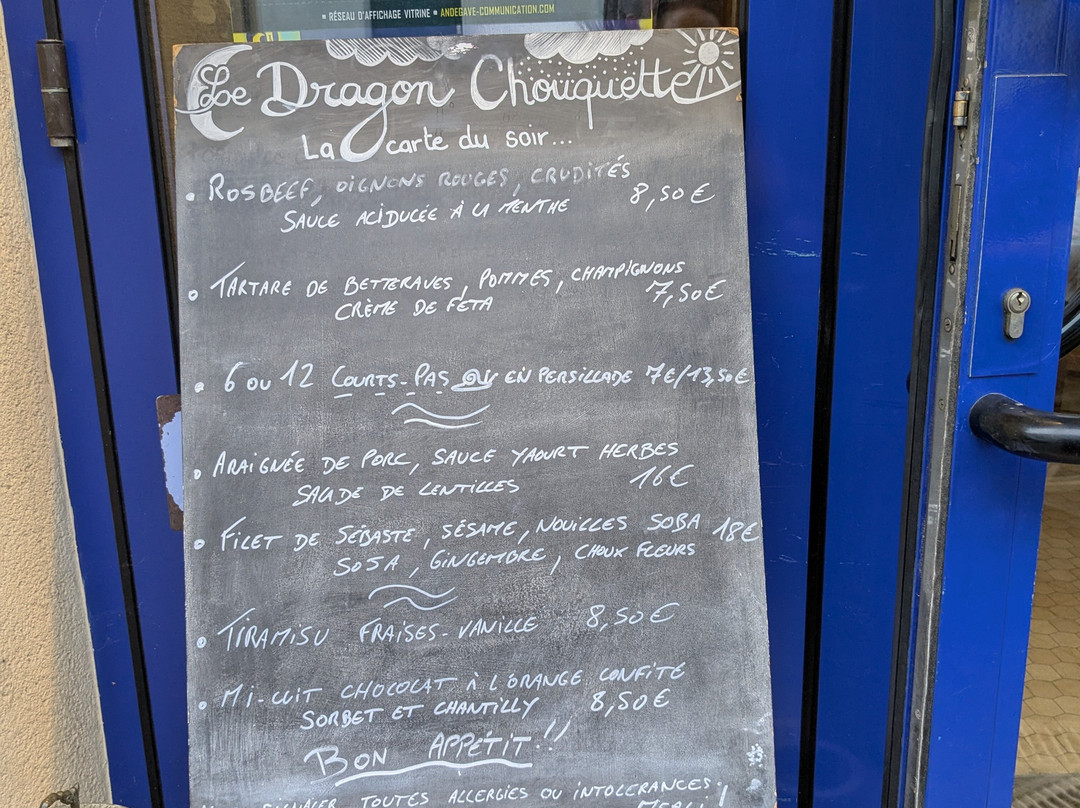 • RÉSEAU D'AFFICHAGE VITRINE • ANDEGAVE-COMMUNICATION.COM
Le Dragon Chouquette
La carte du soir...
• ROSBEEF, OIGNONS ROUGES, CRUDITÉS
SAUCE ACIDULÉE À LA MENTHE 8,50€
• TARTARE DE BETTERAVES, POMMES, CHAMPIGNONS
CRÈME DE FETA 7,50€
• 6 OU 12 COURTS-PAS EN PERSILLADE 7€/13,50€
• ARAIGNÉE DE PORC, SAUCE YAOURT HERBES
SALADE DE LENTILLES 16€
• FILET DE SÉBASTE, SÉSAME, NOUILLES SOBA 18€
SOJA, GINGEMBRE, CHOUX FLEURS
• TIRAMISU FRAISES-VANILLE 8,50€
• MI-CUIT CHOCOLAT À L'ORANGE CONFITE
SORBET ET CHANTILLY 8,50€
BON APPÉTIT!!
SIGNALER TOUTES ALLERGIES OU INTOLERANCES;
MERCI!